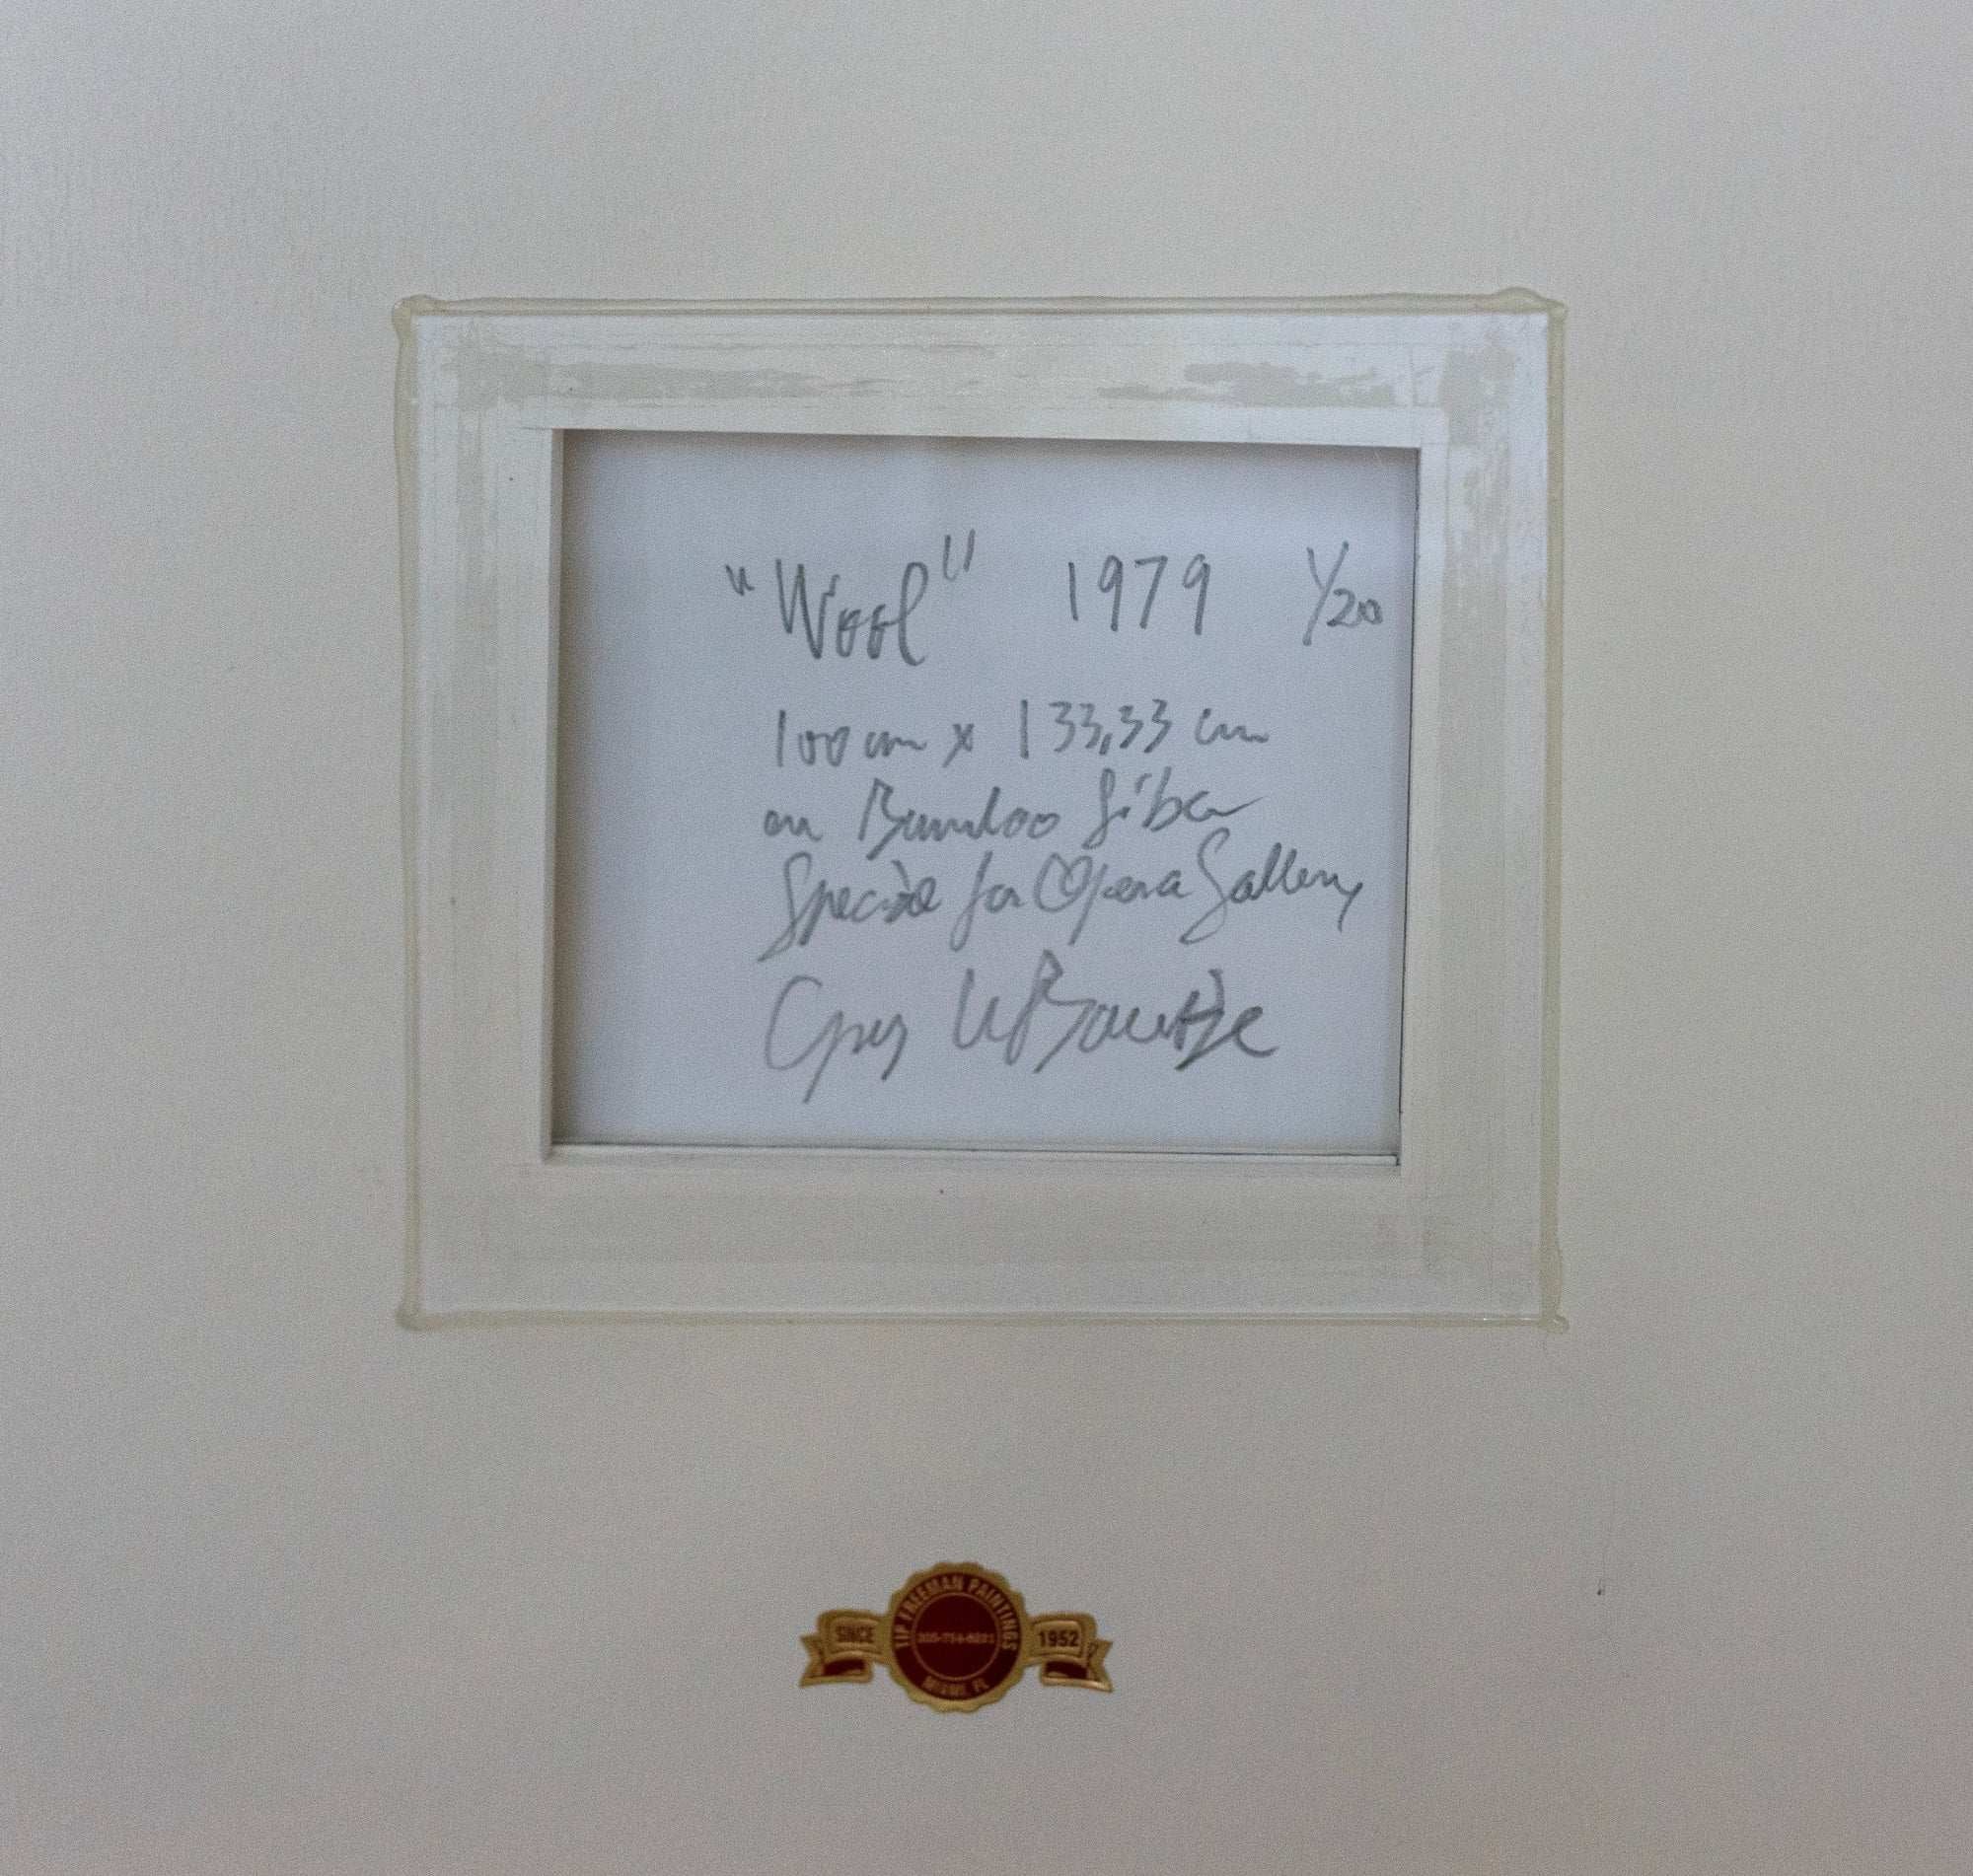 "Wool" 1979 1/20
100 cm x 133,33 cm
on Bamboo fiber
Special for Opera Gallery
SINCE
TIP FREEMAN PAINTINGS
1952
MIAMI, FL